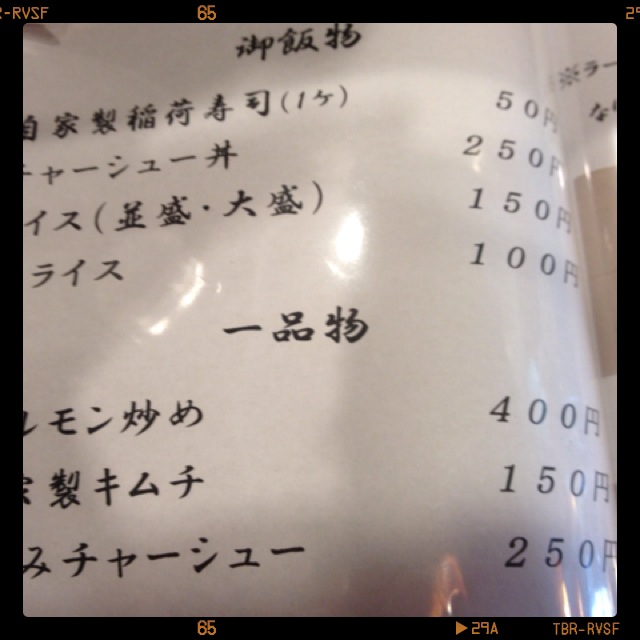 -RVSF 65 29
御飯物
自家製稲荷寿司(1ヶ) 50円
チャーシュー丼 250円
イス(並盛・大盛) 150円
ライス 100円
一品物
ルモン炒め 400円
家製キムチ 150円
みチャーシュー 250円
※ラー
な
65 ▶29A TBR-RVSF